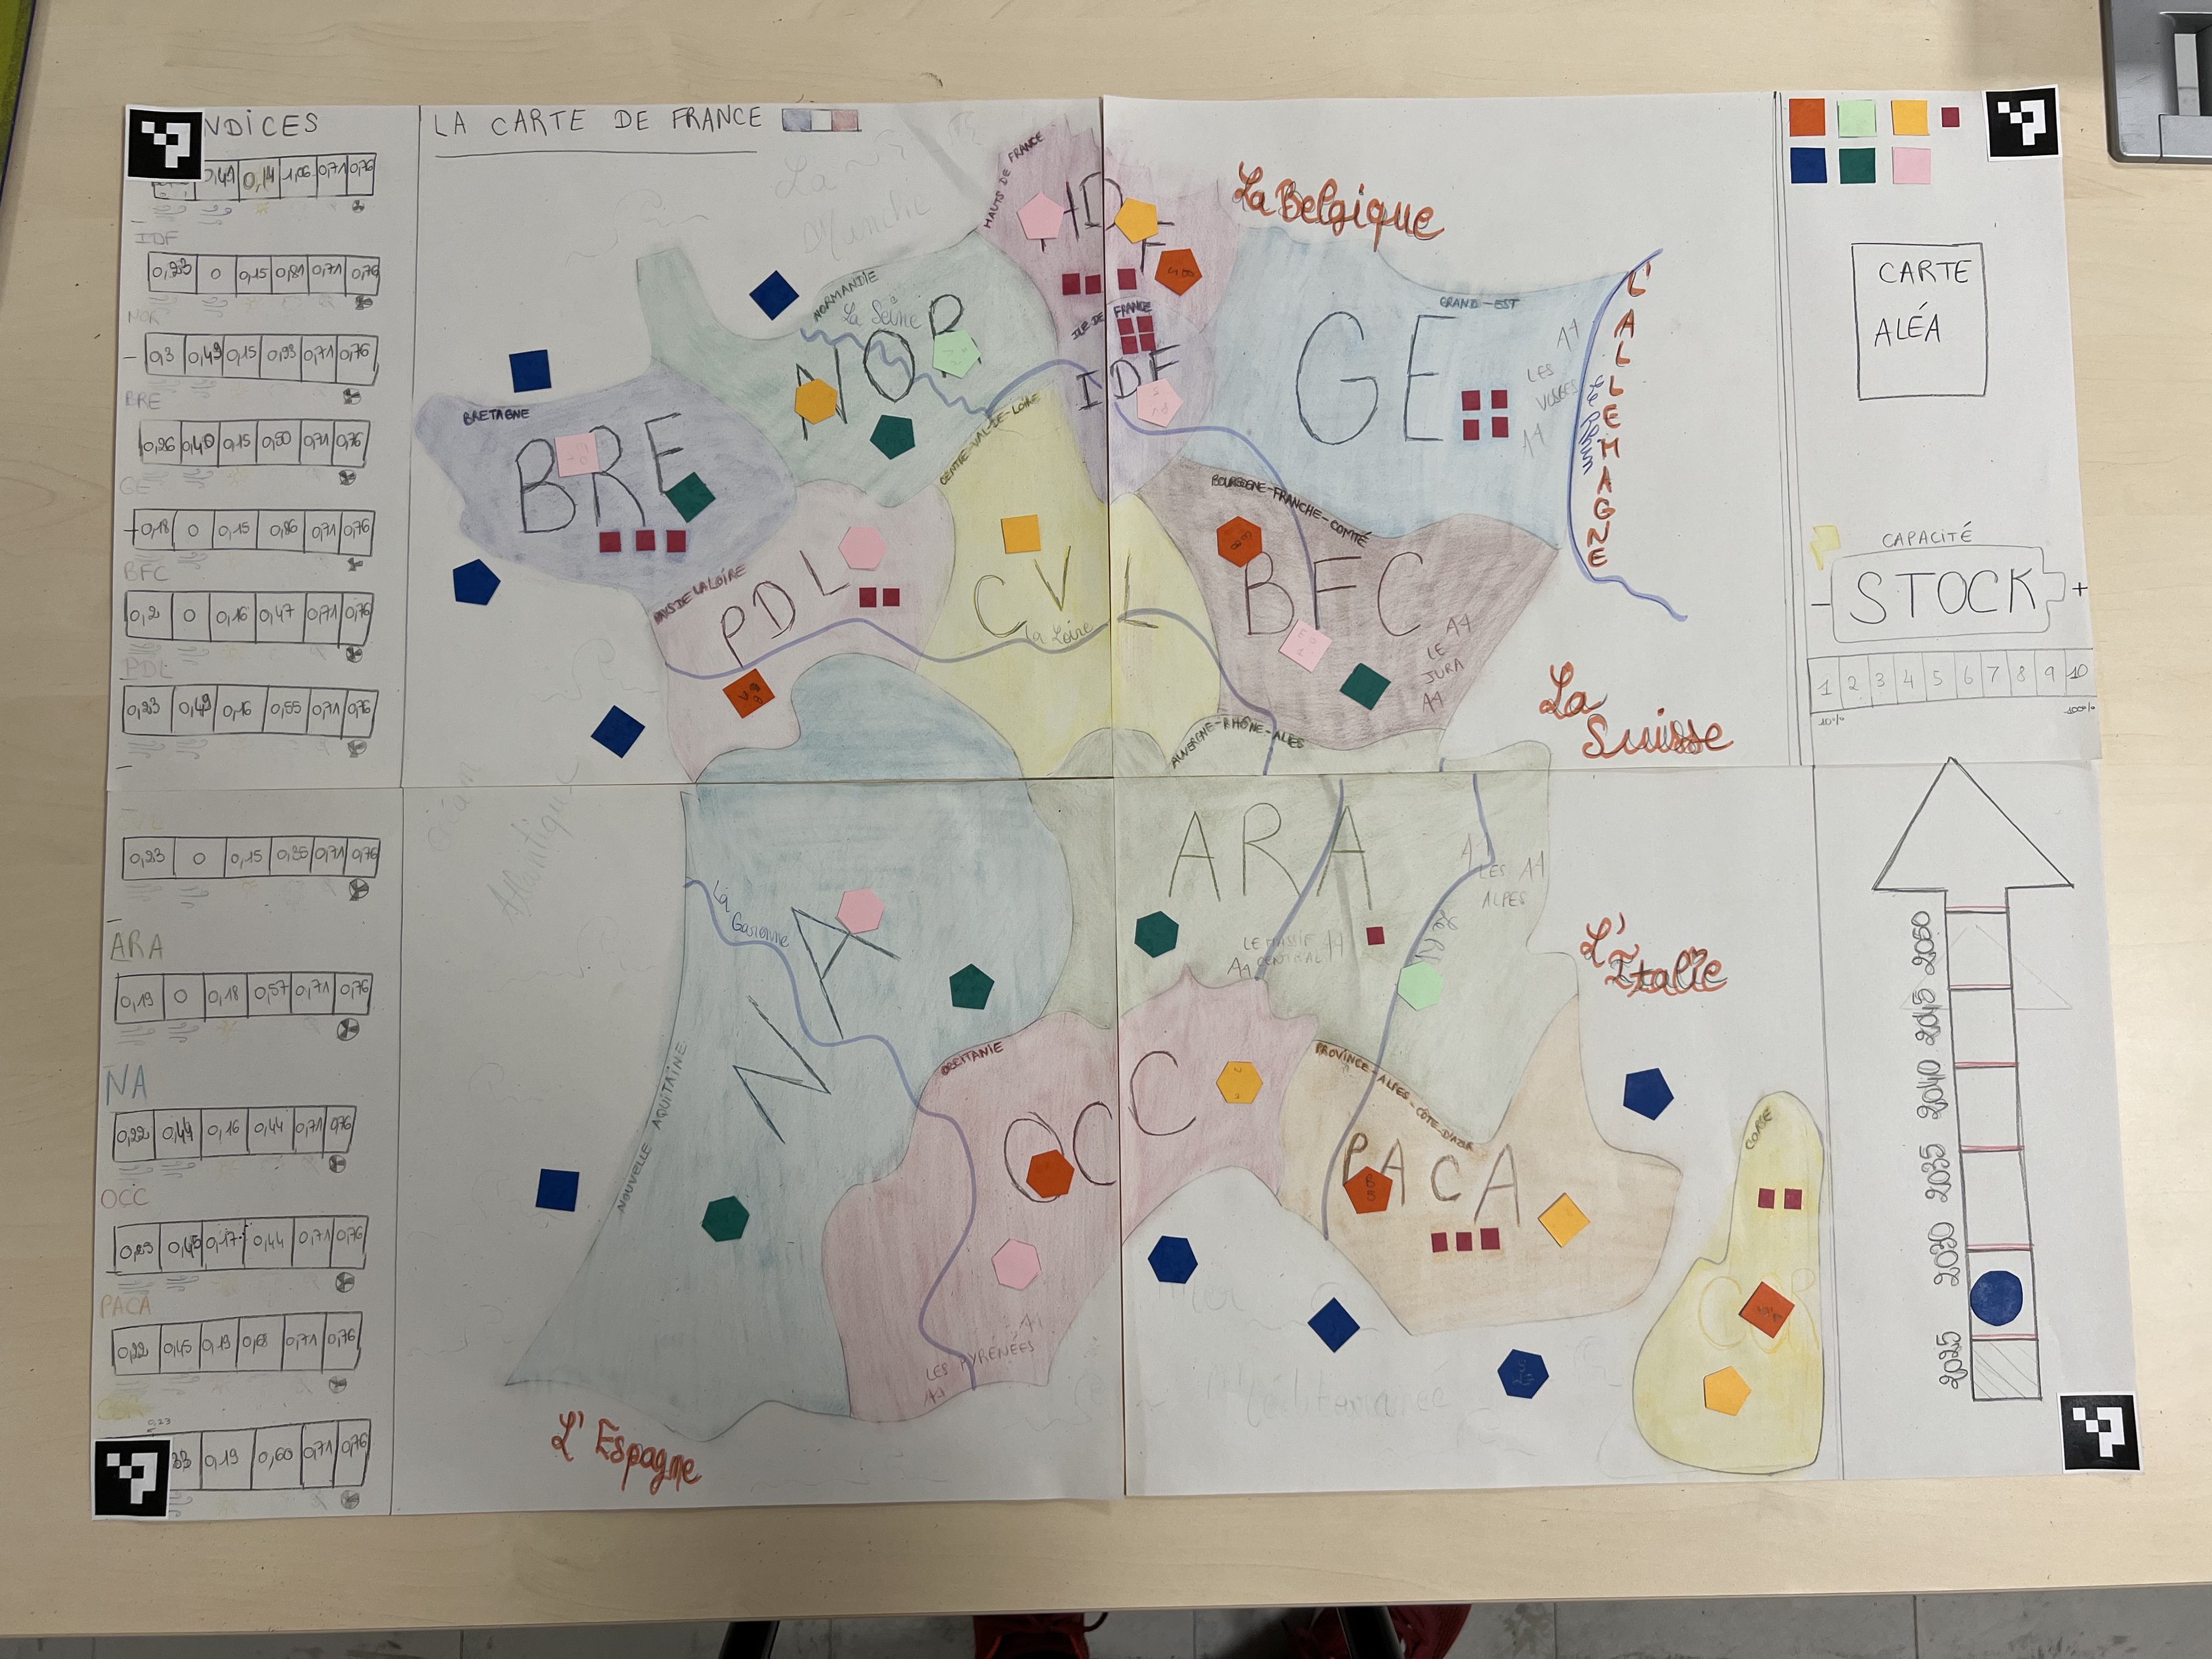 NDICES
0,49 0,14 1,06 0,71 0,76
IDF
0,23 0 0,15 0,81 0,71 0,76
NOR
0,3 0,49 0,15 0,93 0,71 0,76
BRE
0,26 0,48 0,15 0,50 0,71 0,76
GE
0,18 0 0,15 0,86 0,71 0,76
BFC
0,2 0 0,16 0,47 0,71 0,76
PDL
0,23 0,49 0,16 0,55 0,71 0,76
0,23 0 0,15 0,35 0,71 0,76
ARA
0,19 0 0,18 0,57 0,71 0,76
NA
0,22 0,44 0,16 0,44 0,71 0,76
OCC
0,23 0,45 0,17 0,44 0,71 0,76
PACA
0,22 0,45 0,19 0,68 0,71 0,76
COR
0,23
33 0,19 0,60 0,71 0,76
LA CARTE DE FRANCE
La Manche
HAUTS DE FRANCE
HDF
La Belgique
NORMANDIE
La Seine
NOR
ILE DE FRANCE
IDF
GRAND-EST
GE
LES VOSGES
Le Rhin
L'ALLEMAGNE
BRETAGNE
BRE
CENTRE-VAL-DE-LOIRE
CVL
La Loire
PAYS DE LA LOIRE
PDL
BOURGOGNE-FRANCHE-COMTÉ
BFC
LE JURA
La Suisse
AUVERGNE-RHÔNE-ALPES
ARA
LES ALPES
LE MASSIF CENTRAL
L'Italie
Océan Atlantique
La Garonne
NA
NOUVELLE AQUITAINE
OCCITANIE
OCC
LES PYRÉNÉES
PROVINCE-ALPES-CÔTE-D'AZUR
PACA
Mer Méditerranée
CORSE
COR
L'Espagne
CARTE
ALÉA
CAPACITÉ
- STOCK +
1 2 3 4 5 6 7 8 9 10
10% 100%
2050
2045
2040
2035
2030
2025